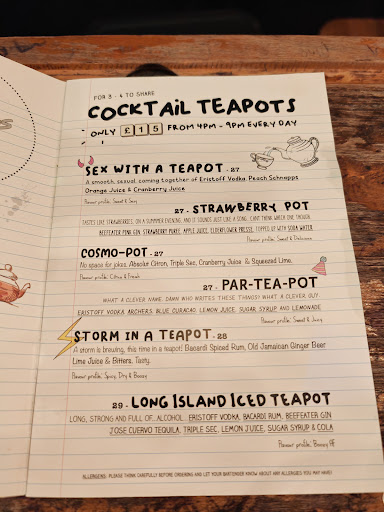 FOR 3 - 4 TO SHARE
COCKTAIL TEAPOTS
ONLY £15 FROM 4PM - 9PM EVERY DAY
SEX WITH A TEAPOT - 27
A smooth, sexual coming together of Eristoff Vodka, Peach Schnapps
Orange Juice & Cranberry Juice
Flavour profile: Sweet & Sexy
27 - STRAWBERRY POT
TASTES LIKE STRAWBERRIES, ON A SUMMER EVENING, AND IT SOUNDS JUST LIKE A SONG. I CAN'T THINK WHICH ONE THOUGH.
BEEFEATER PINK GIN, STRAWBERRY PUREE, APPLE JUICE, ELDERFLOWER PRESSE, TOPPED UP WITH SODA WATER
Flavour profile: Sweet & Delicious
COSMO-POT - 27
No space for jokes. Absolut Citron, Triple Sec, Cranberry Juice & Squeezed Lime.
Flavour profile: Citrus & Fresh
27 - PAR-TEA-POT
WHAT A CLEVER NAME. DAMN WHO WRITES THESE THINGS? WHAT A CLEVER GUY.
ERISTOFF VODKA, ARCHERS, BLUE CURACAO, LEMON JUICE, SUGAR SYRUP AND LEMONADE
Flavour profile: Sweet & Juicy
STORM IN A TEAPOT - 28
A storm is brewing, this time in a teapot! Bacardi Spiced Rum, Old Jamaican Ginger Beer
Lime Juice & Bitters. Tasty.
Flavour profile: Spicy, Dry & Boozy
29 - LONG ISLAND ICED TEAPOT
LONG, STRONG AND FULL OF, ALCOHOL. ERISTOFF VODKA, BACARDI RUM, BEEFEATER GIN
JOSE CUERVO TEQUILA, TRIPLE SEC, LEMON JUICE, SUGAR SYRUP & COLA
Flavour profile: Boozy AF
ALLERGENS: PLEASE THINK CAREFULLY BEFORE ORDERING AND LET YOUR BARTENDER KNOW ABOUT ANY ALLERGIES YOU MAY HAVE!